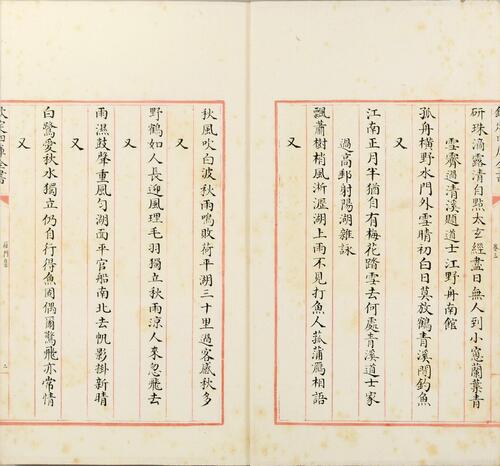 研珠滴露清自點太玄經盡日無人到小窗蘭葉青
雪霽過清溪題道士江野舟南館
孤舟橫野水門外雪晴初白日莫放鶴青溪閒釣魚
又
江南正月半猶自有梅花踏雪去何處青溪道士家
過高郵射陽湖雜詠
飄蕭樹梢風淅瀝湖上雨不見打魚人菰蒲鴈相語
又
秋風吹白波秋雨鳴敗荷平湖三十里過客感秋多
又
野鶴如人長迎風理毛羽獨立秋雨涼人來忽飛去
又
雨濕鼓聲重風勻湖面平官船南北去帆影掛新晴
又
白鷺愛秋水獨立仍自行得魚固偶爾驚飛亦常情